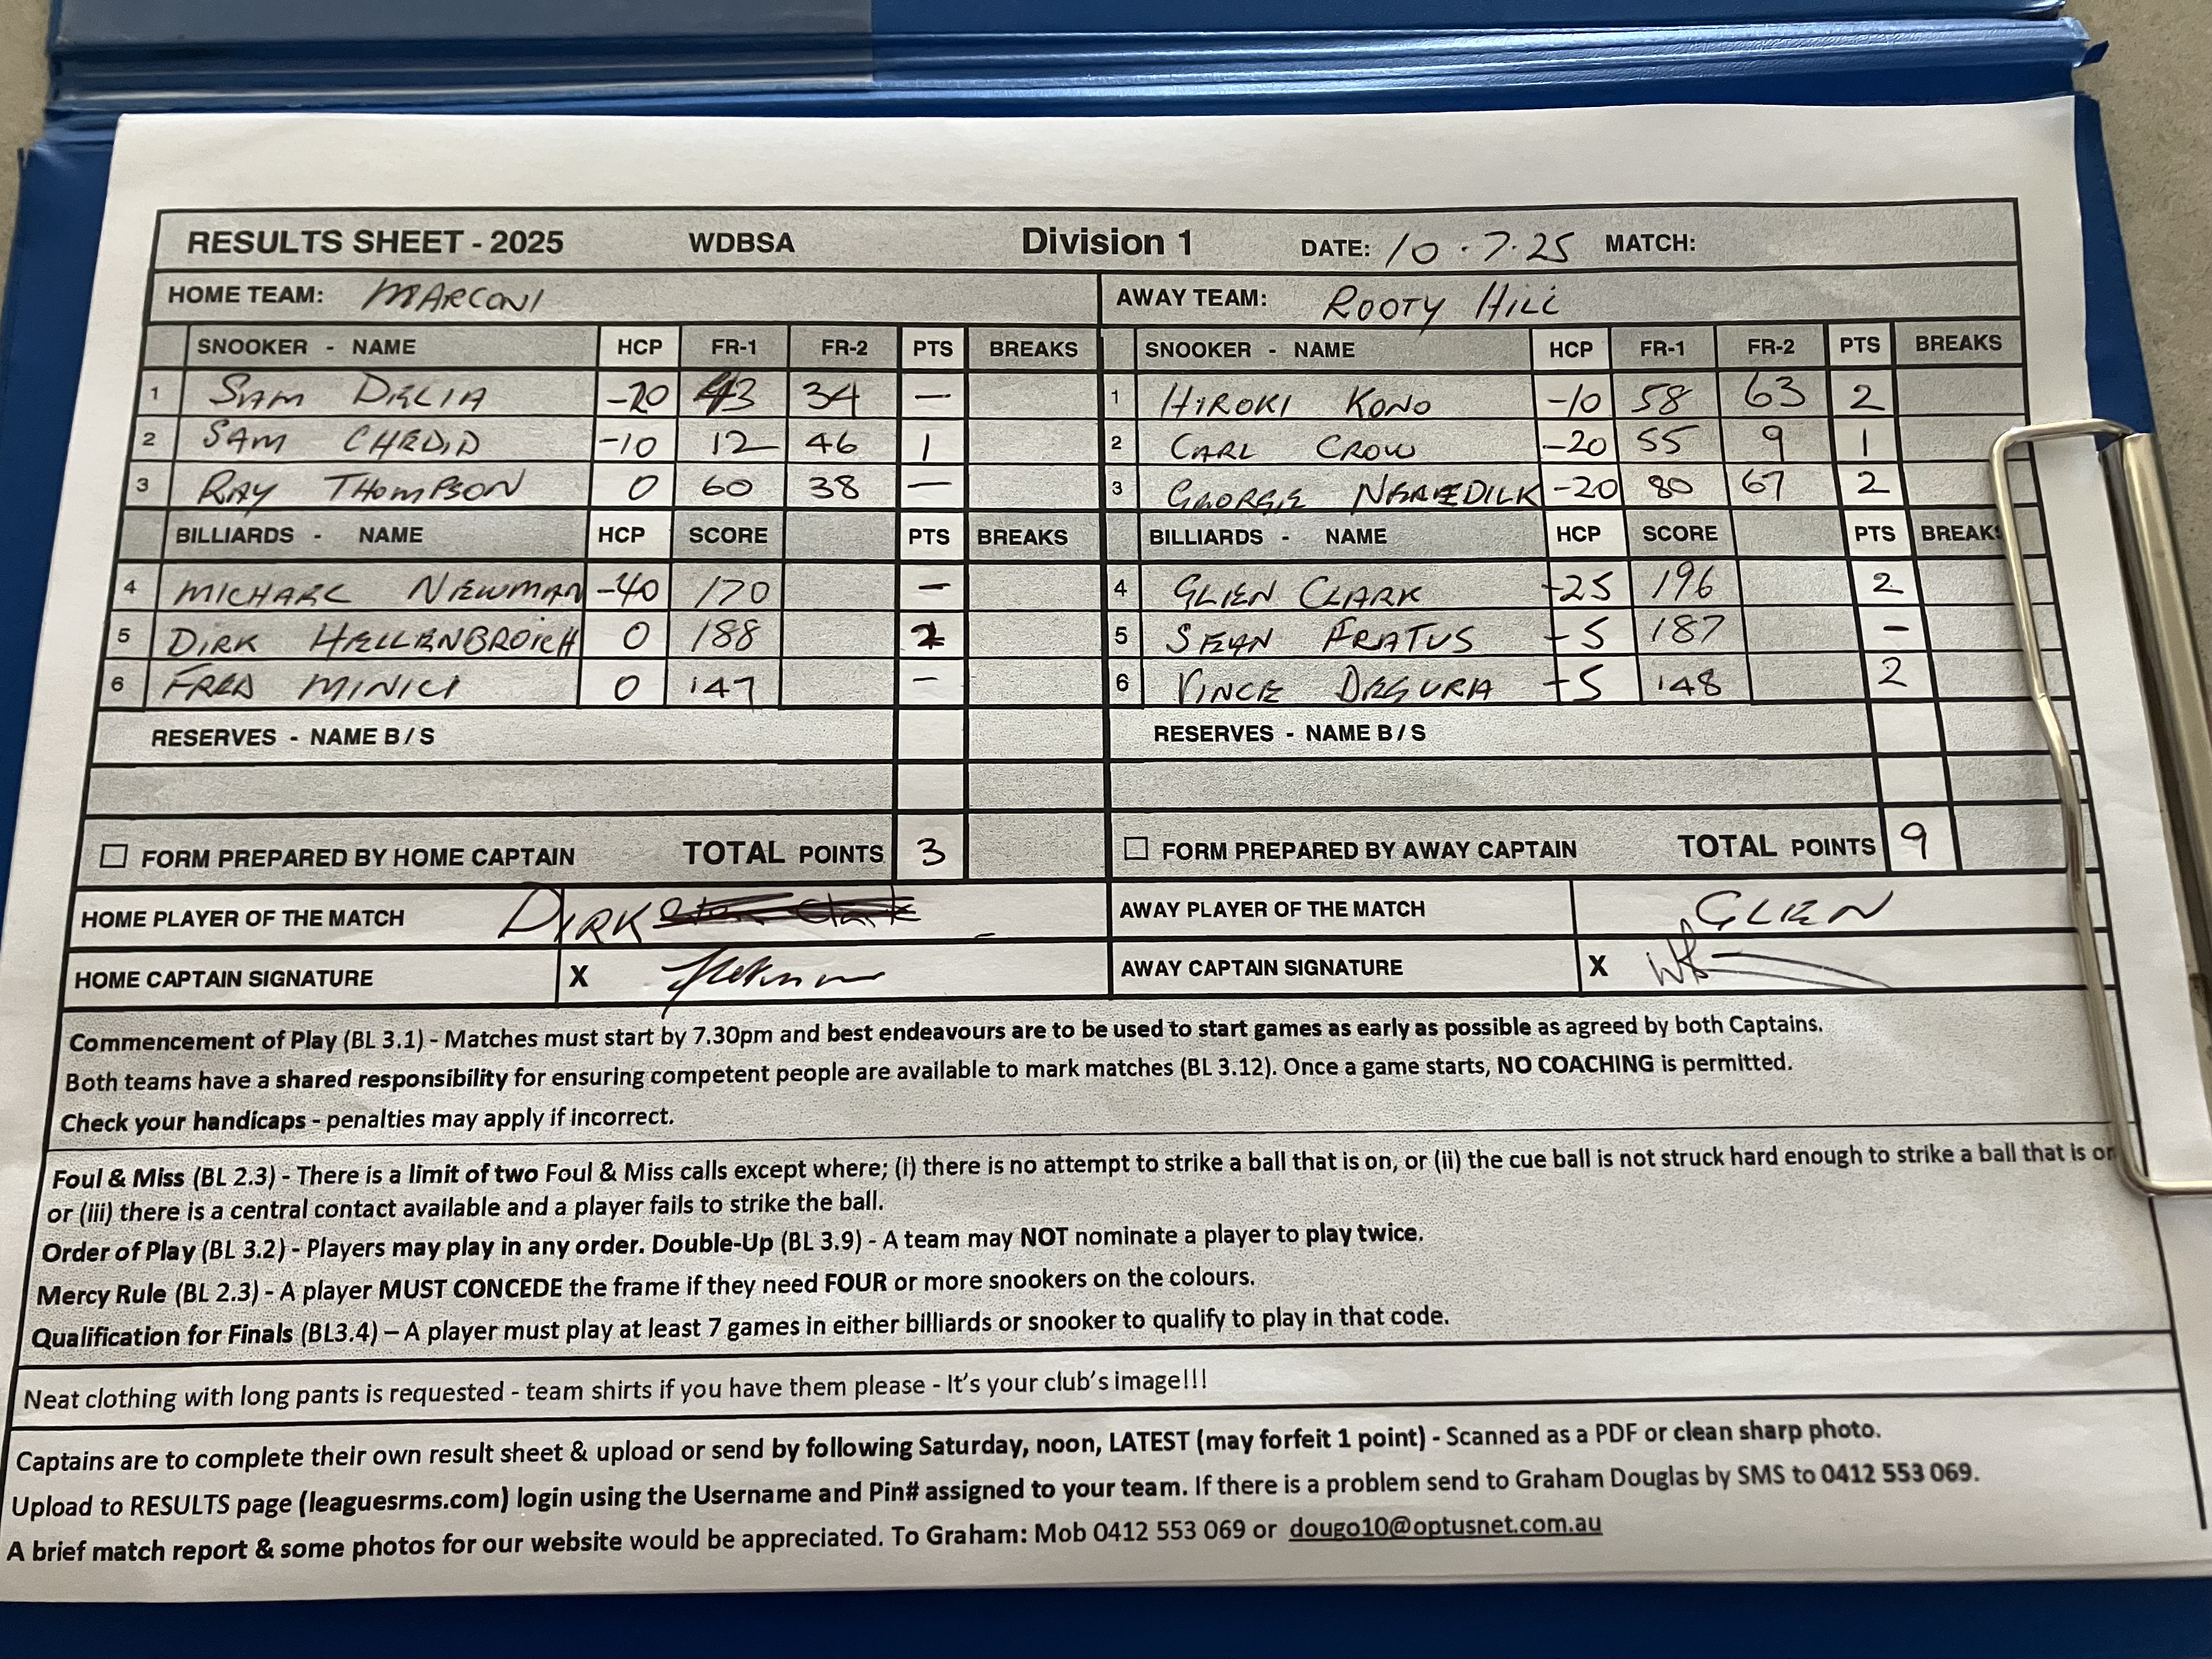 RESULTS SHEET - 2025 WDBSA Division 1 DATE: 10.7.25 MATCH:
HOME TEAM: MARCONI AWAY TEAM: ROOTY HILL
SNOOKER - NAME HCP FR-1 FR-2 PTS BREAKS SNOOKER - NAME HCP FR-1 FR-2 PTS BREAKS
1 SAM DELIA -20 43 34 — 1 HIROKI KONO -10 58 63 2
2 SAM CHEDID -10 12 46 1 2 CARL CROW -20 55 9 1
3 RAY THOMPSON 0 60 38 — 3 GEORGE -20 80 67 2
BILLIARDS - NAME HCP SCORE PTS BREAKS BILLIARDS - NAME HCP SCORE PTS BREAKS
4 MICHAEL NEWMAN -40 170 — 4 GLEN CLARK +25 196 2
5 DIRK HELLENBROICH 0 188 2 5 SEAN FRATUS +5 187 —
6 FRED MINICI 0 147 — 6 VINCE DEGURA +5 148 2
RESERVES - NAME B / S RESERVES - NAME B / S
FORM PREPARED BY HOME CAPTAIN TOTAL POINTS 3 FORM PREPARED BY AWAY CAPTAIN TOTAL POINTS 9
HOME PLAYER OF THE MATCH DIRK AWAY PLAYER OF THE MATCH GLEN
HOME CAPTAIN SIGNATURE X AWAY CAPTAIN SIGNATURE X
Commencement of Play (BL 3.1) - Matches must start by 7.30pm and best endeavours are to be used to start games as early as possible as agreed by both Captains.
Both teams have a shared responsibility for ensuring competent people are available to mark matches (BL 3.12). Once a game starts, NO COACHING is permitted.
Check your handicaps - penalties may apply if incorrect.
Foul & Miss (BL 2.3) - There is a limit of two Foul & Miss calls except where; (i) there is no attempt to strike a ball that is on, or (ii) the cue ball is not struck hard enough to strike a ball that is on
or (iii) there is a central contact available and a player fails to strike the ball.
Order of Play (BL 3.2) - Players may play in any order. Double-Up (BL 3.9) - A team may NOT nominate a player to play twice.
Mercy Rule (BL 2.3) - A player MUST CONCEDE the frame if they need FOUR or more snookers on the colours.
Qualification for Finals (BL3.4) – A player must play at least 7 games in either billiards or snooker to qualify to play in that code.
Neat clothing with long pants is requested - team shirts if you have them please - It's your club's image!!!
Captains are to complete their own result sheet & upload or send by following Saturday, noon, LATEST (may forfeit 1 point) - Scanned as a PDF or clean sharp photo.
Upload to RESULTS page (leaguesrms.com) login using the Username and Pin# assigned to your team. If there is a problem send to Graham Douglas by SMS to 0412 553 069.
A brief match report & some photos for our website would be appreciated. To Graham: Mob 0412 553 069 or dougo10@optusnet.com.au